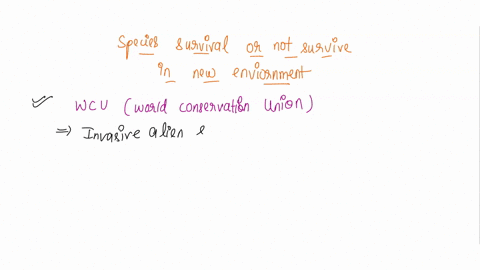 Species survival or not survive
in new enviornment
WCU (world conservation Union)
⇒ Invasive alien